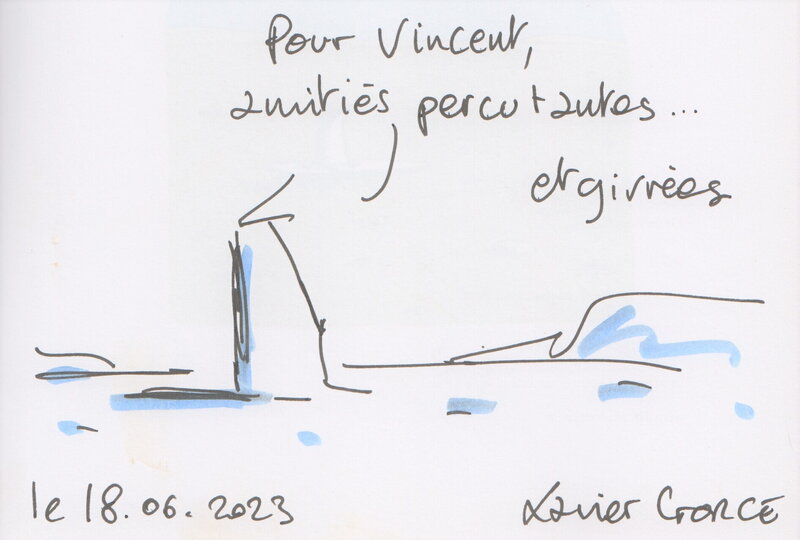 Pour Vincent,
amitiés percutantes...
et givrées
le 18.06.2023
Xavier GORCE